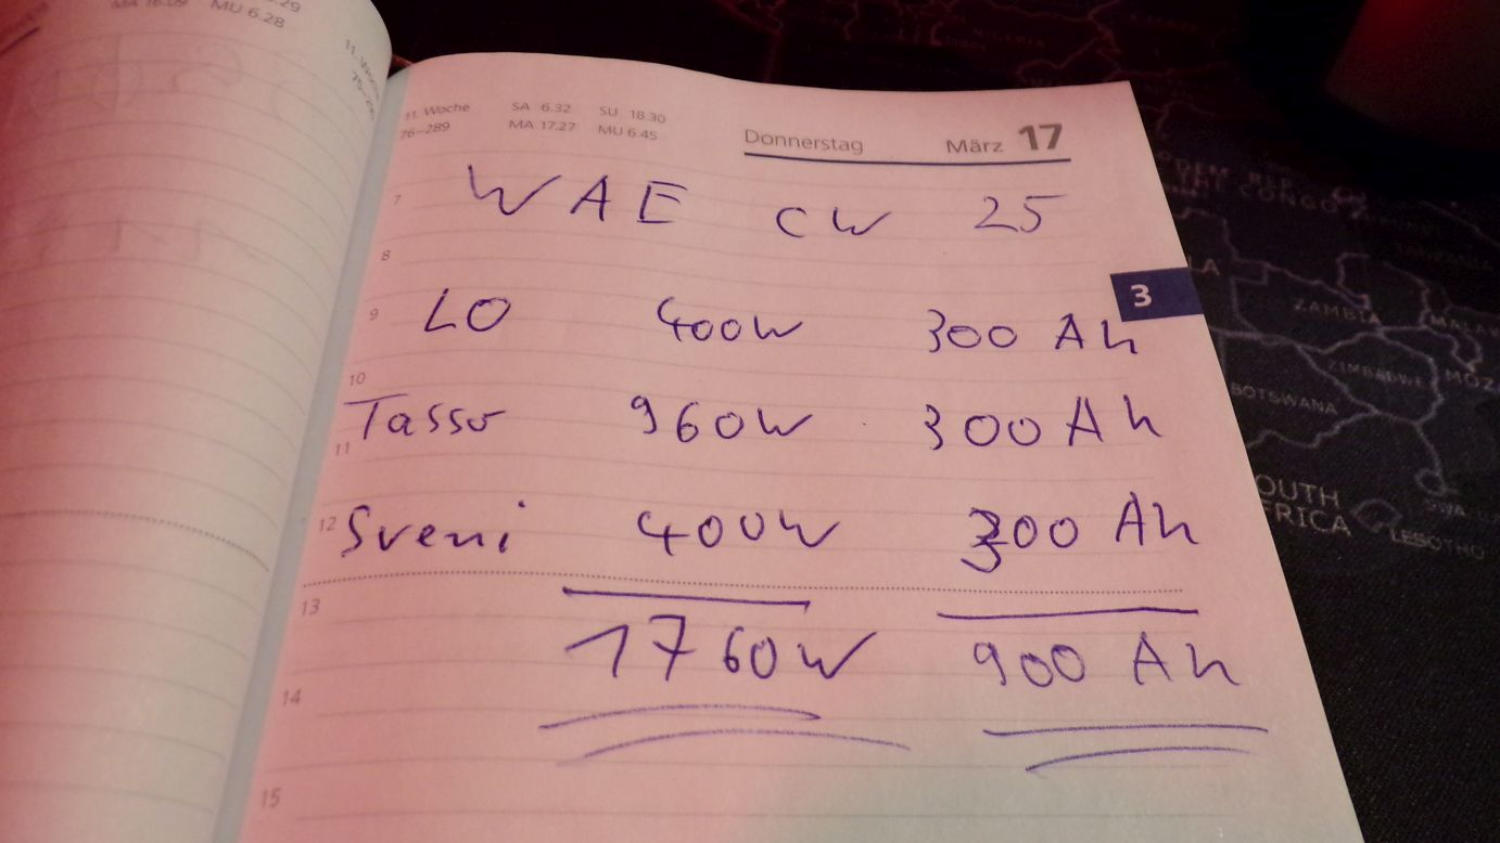 29
MA 16.09 MU 6.28
11. Woche SA 6.32 SU 18.30
76–289 MA 17.27 MU 6.45
Donnerstag März 17
7
WAE CW 25
8
3
9 LO 400W 300 Ah
10
Tasso 960W 300 Ah
11
12 Sveni 400W 300 Ah
13
1760W 900 Ah
14
15
ZAMBIA
ZIMBABWE
BOTSWANA
OUTH
FRICA
LESOTHO